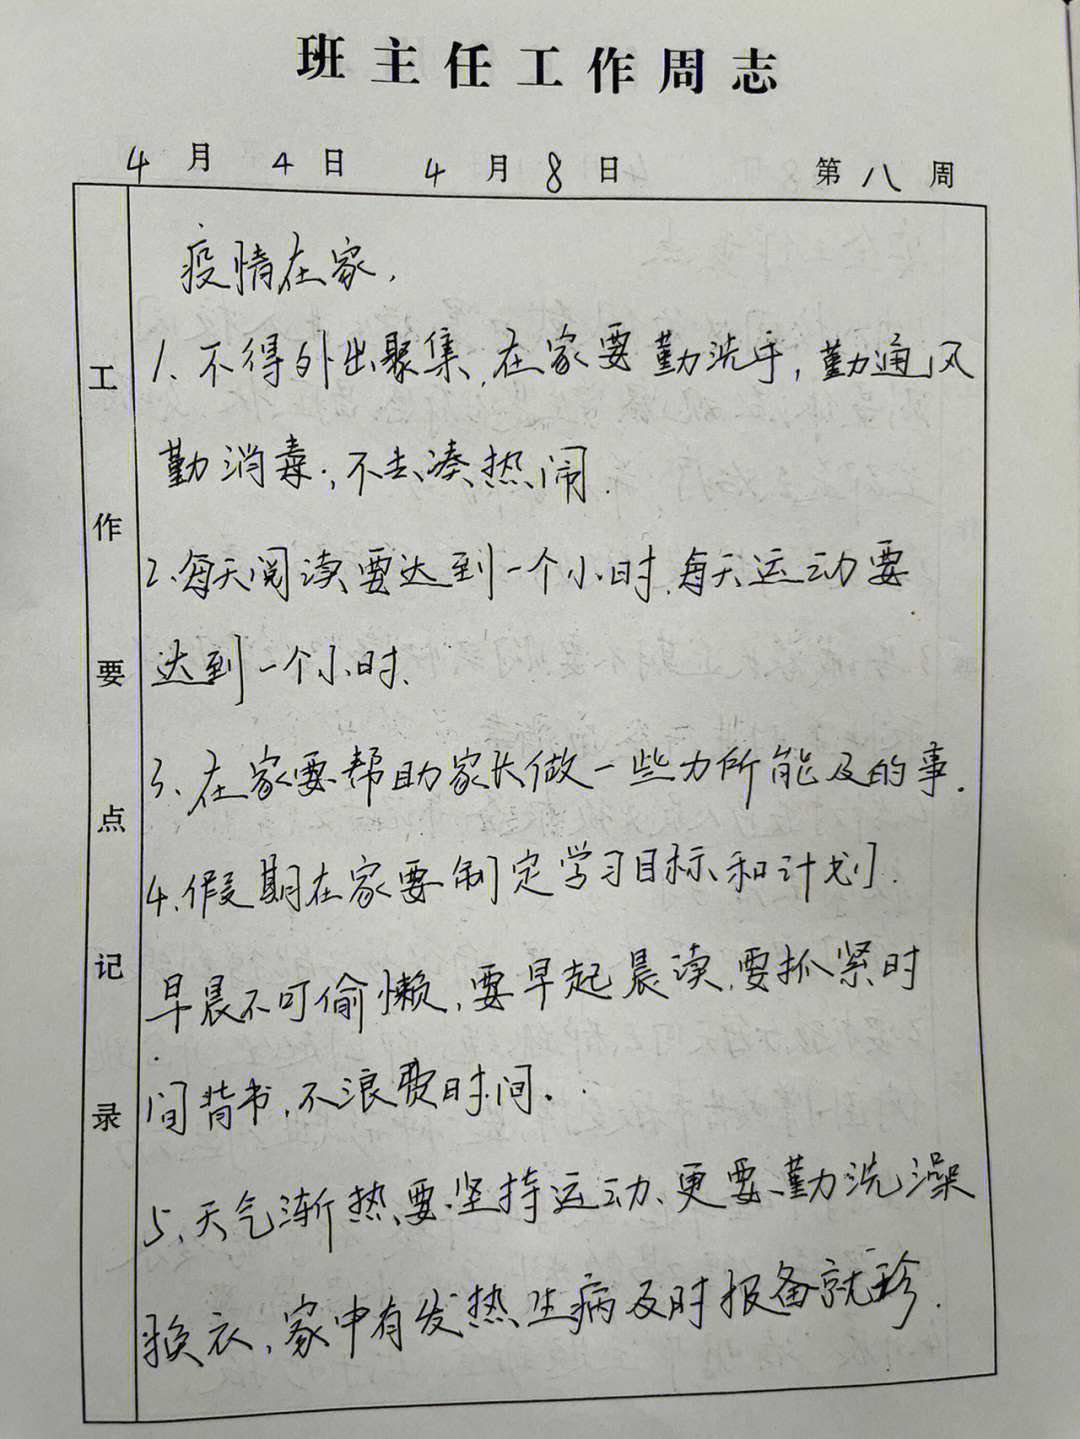 班主任工作周志
4月4日 4月8日 第八周
工作要点记录
疫情在家,
1、不得外出聚集,在家要勤洗手,勤通风
勤消毒;不去凑热闹.
2、每天阅读要达到一个小时.每天运动要
达到一个小时.
3、在家要帮助家长做一些力所能及的事.
4、假期在家要制定学习目标和计划.
早晨不可偷懒,要早起晨读,要抓紧时
间背书,不浪费时间.
5、天气渐热要坚持运动、更要勤洗澡
换衣,家中有发热生病及时报备就珍.